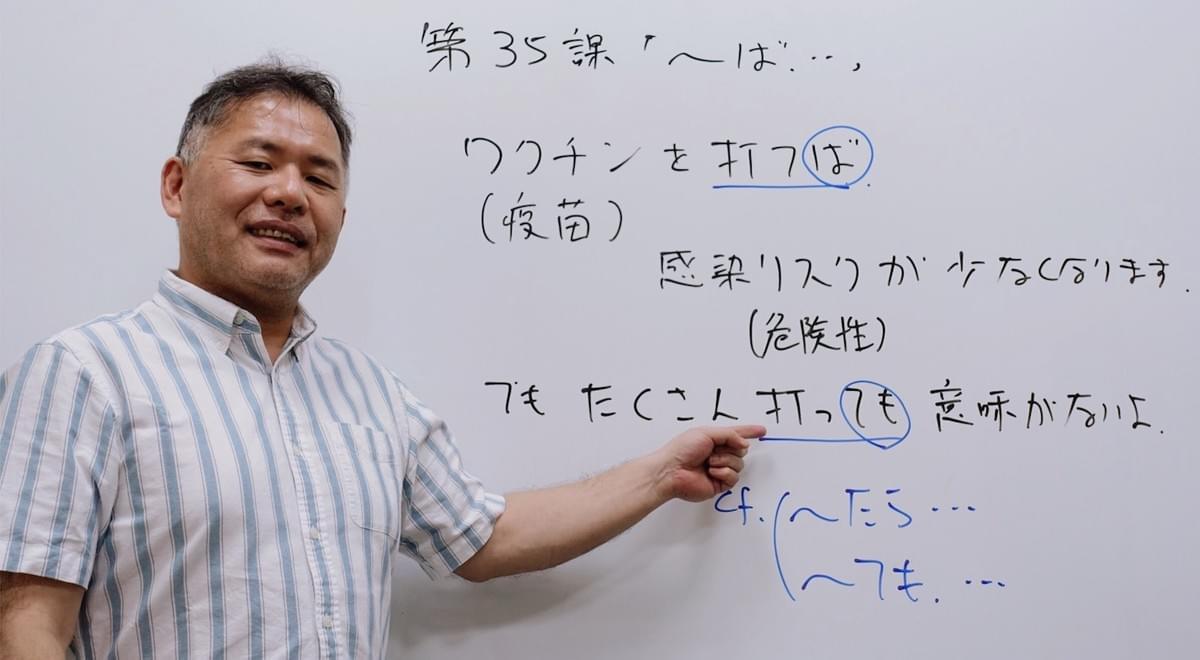 第35課「〜ば…」
ワクチンを打てば
(疫苗)
感染リスクが少なくなります.
(危険性)
でもたくさん打っても意味がないよ.
cf. 〜たら…
〜ても. …